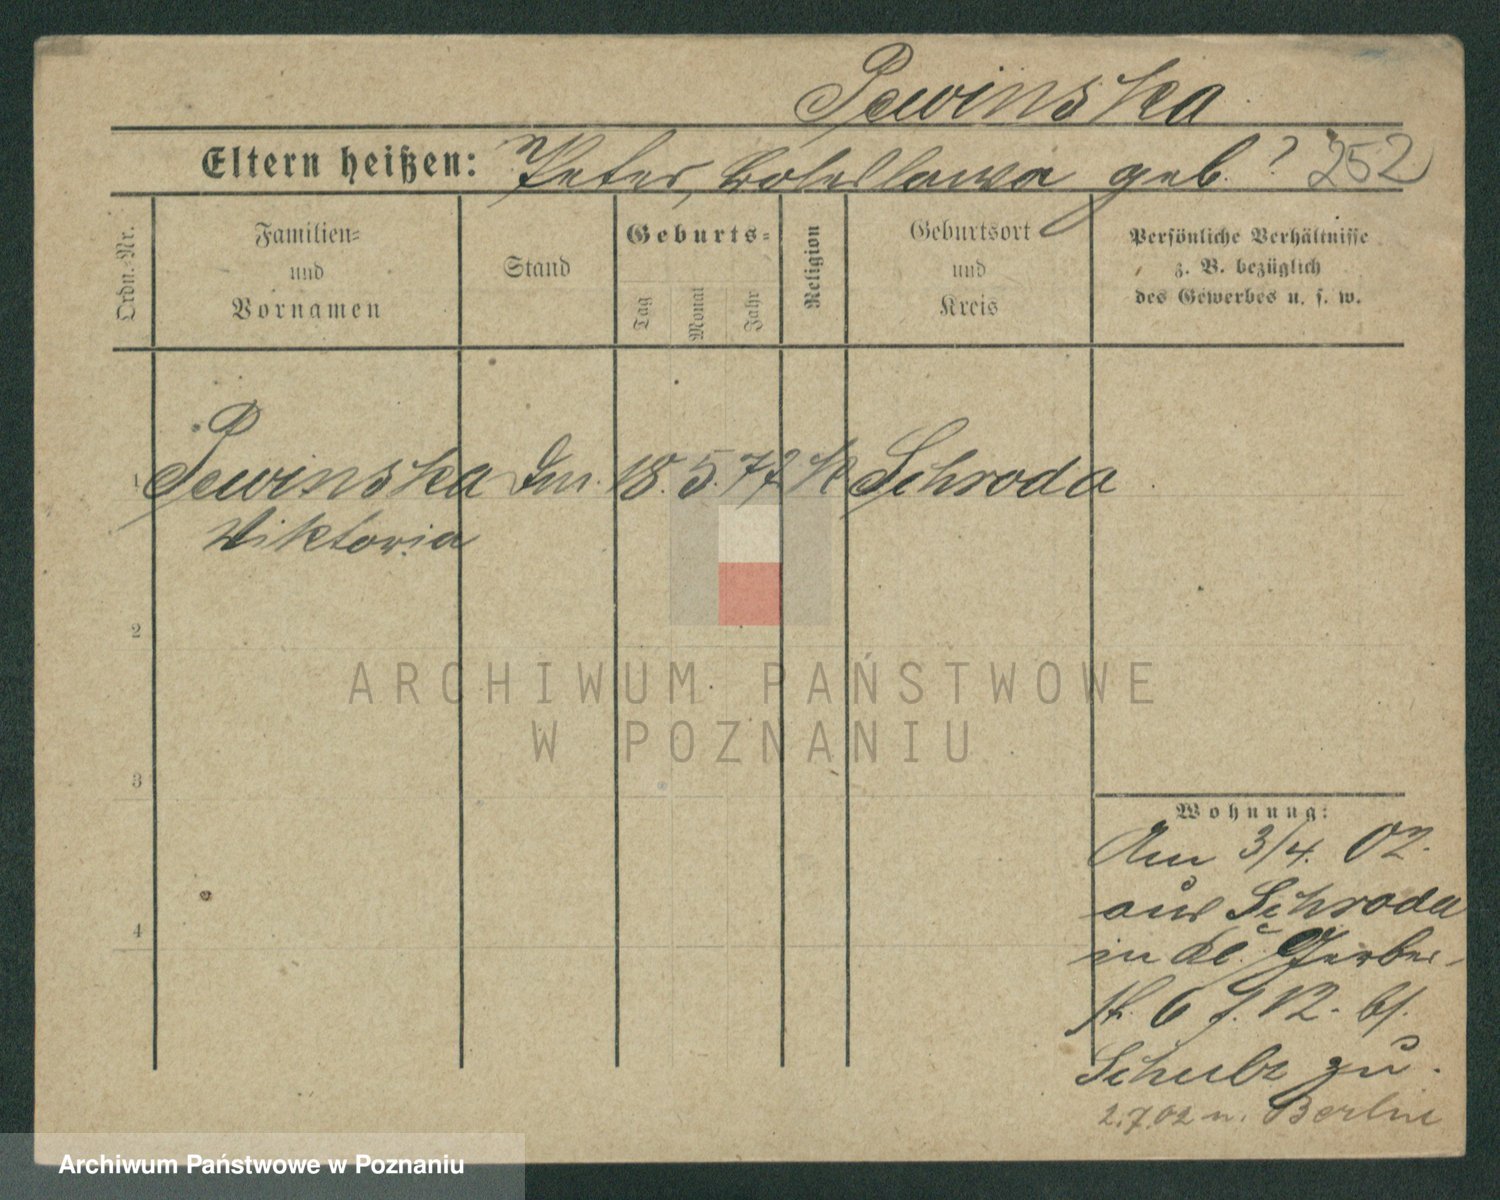 Pewinska
Eltern heißen: Peter, Boleslawa geb. ? 252
Ordn.-Nr.
Familien-
und
Vornamen
Stand
Geburts-
Tag
Monat
Jahr
Religion
Geburtsort
und
Kreis
Persönliche Verhältnisse
z. B. bezüglich
des Gewerbes u. s. w.
1 Pewinska 18. 5. 77 K Schroda
Wiktoria
2
3
4
Wohnung:
Am 3/4. 02.
aus Schroda
in Kl. Gerber-
str. 6 b/.
Schulz zu.
2.7.02 n. Berlin
ARCHIWUM PAŃSTWOWE
W POZNANIU
Archiwum Państwowe w Poznaniu